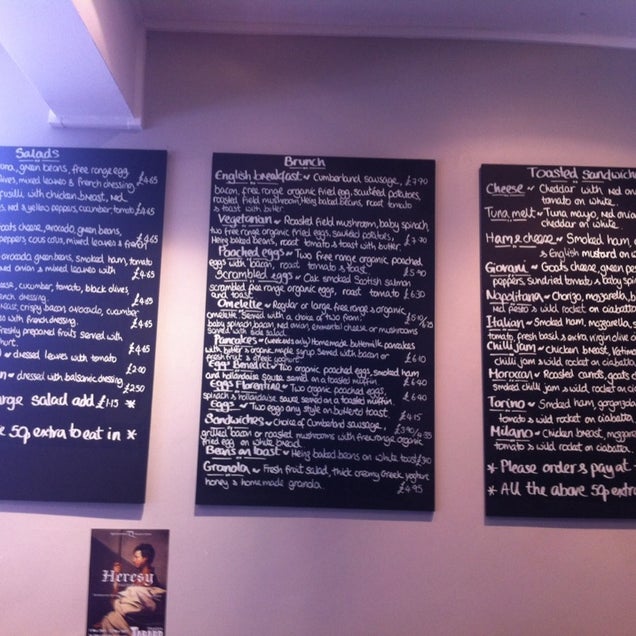 Salads
tuna, green beans, free range egg
olives, mixed leaves & french dressing £4.65
fusilli with chicken breast, red
red & yellow peppers, cucumber, tomato £4.65
goats cheese, avocado, green beans,
peppers, cous cous, mixed leaves & £4.65
avocado, green beans, smoked ham, tomato
red onion & mixed leaves with £4.65
cheese, cucumber, tomato, black olives,
french dressing. £4.65
breast, crispy bacon, avocado, cucumber
with french dressing. £4.65
freshly prepared fruits served with
£4.65
dressed leaves with tomato £2.00
dressed with balsamic dressing £2.50
large salad add £1.15 *
50p extra to eat in *
Brunch
English breakfast ~ Cumberland sausage, £7.90
bacon, free range organic fried egg, sautéed potatoes,
roasted field mushroom, Heinz baked beans, roast tomato
& toast with butter
Vegetarian ~ Roasted field mushroom, baby spinach,
two free range organic fried eggs, sautéed potatoes,
Heinz baked beans, roast tomato & toast with butter. £7.90
Poached eggs ~ Two free range organic poached
eggs with bacon, roast tomato & toast £5.90
Scrambled eggs ~ Oak smoked Scottish salmon
scrambled free range organic eggs, roast tomato
and toast £6.30
Omelette ~ Regular or large free range & organic
omelette. Served with a choice of "two from":
baby spinach, bacon, red onion, emmental cheese or mushrooms
served with side salad.
Pancakes ~ (weekends only) Homemade buttermilk pancakes
with butter & organic maple syrup. Served with bacon or
fresh fruit & greek yoghurt £6.10
Eggs Benedict ~ Two organic poached eggs, smoked ham
and hollandaise sauce served on a toasted muffin £6.40
Eggs Florentine ~ Two organic poached eggs,
spinach & hollandaise sauce served on a toasted muffin. £6.40
Eggs ~ Two eggs any style on buttered toast. £4.15
Sandwiches ~ Choice of Cumberland sausage,
grilled bacon or roasted mushrooms with free range organic
fried egg on white bread.
Beans on toast ~ Heinz baked beans on white toast
Granola ~ Fresh fruit salad, thick creamy Greek yoghurt
honey & homemade granola. £4.95
Toasted Sandwich
Cheese ~ Cheddar with red on
tomato on white.
Tuna melt ~ Tuna mayo, red onion
cheddar on white
Ham & cheese ~ Smoked ham,
& English mustard on w
Giovani ~ Goats cheese, green pe
peppers, sundried tomato & baby
Napolitana ~ Chorizo, mozzarella, b
red pesto & wild rocket on ciabatta
Italian ~ Smoked ham, mozzarella,
tomato, fresh basil & extra virgin olive o
Chilli jam ~ chicken breast,
chilli jam & wild rocket on ciab
Moroccan ~ Roasted carrots, goats c
smoked chilli jam & wild rocket on cia
Torino ~ Smoked ham, gorgonzola
tomato & wild rocket on ciabatta
Milano ~ Chicken breast, mozza
tomato & wild rocket on ciabatta
* Please order & pay at
* All the above 50p extra
Heresy